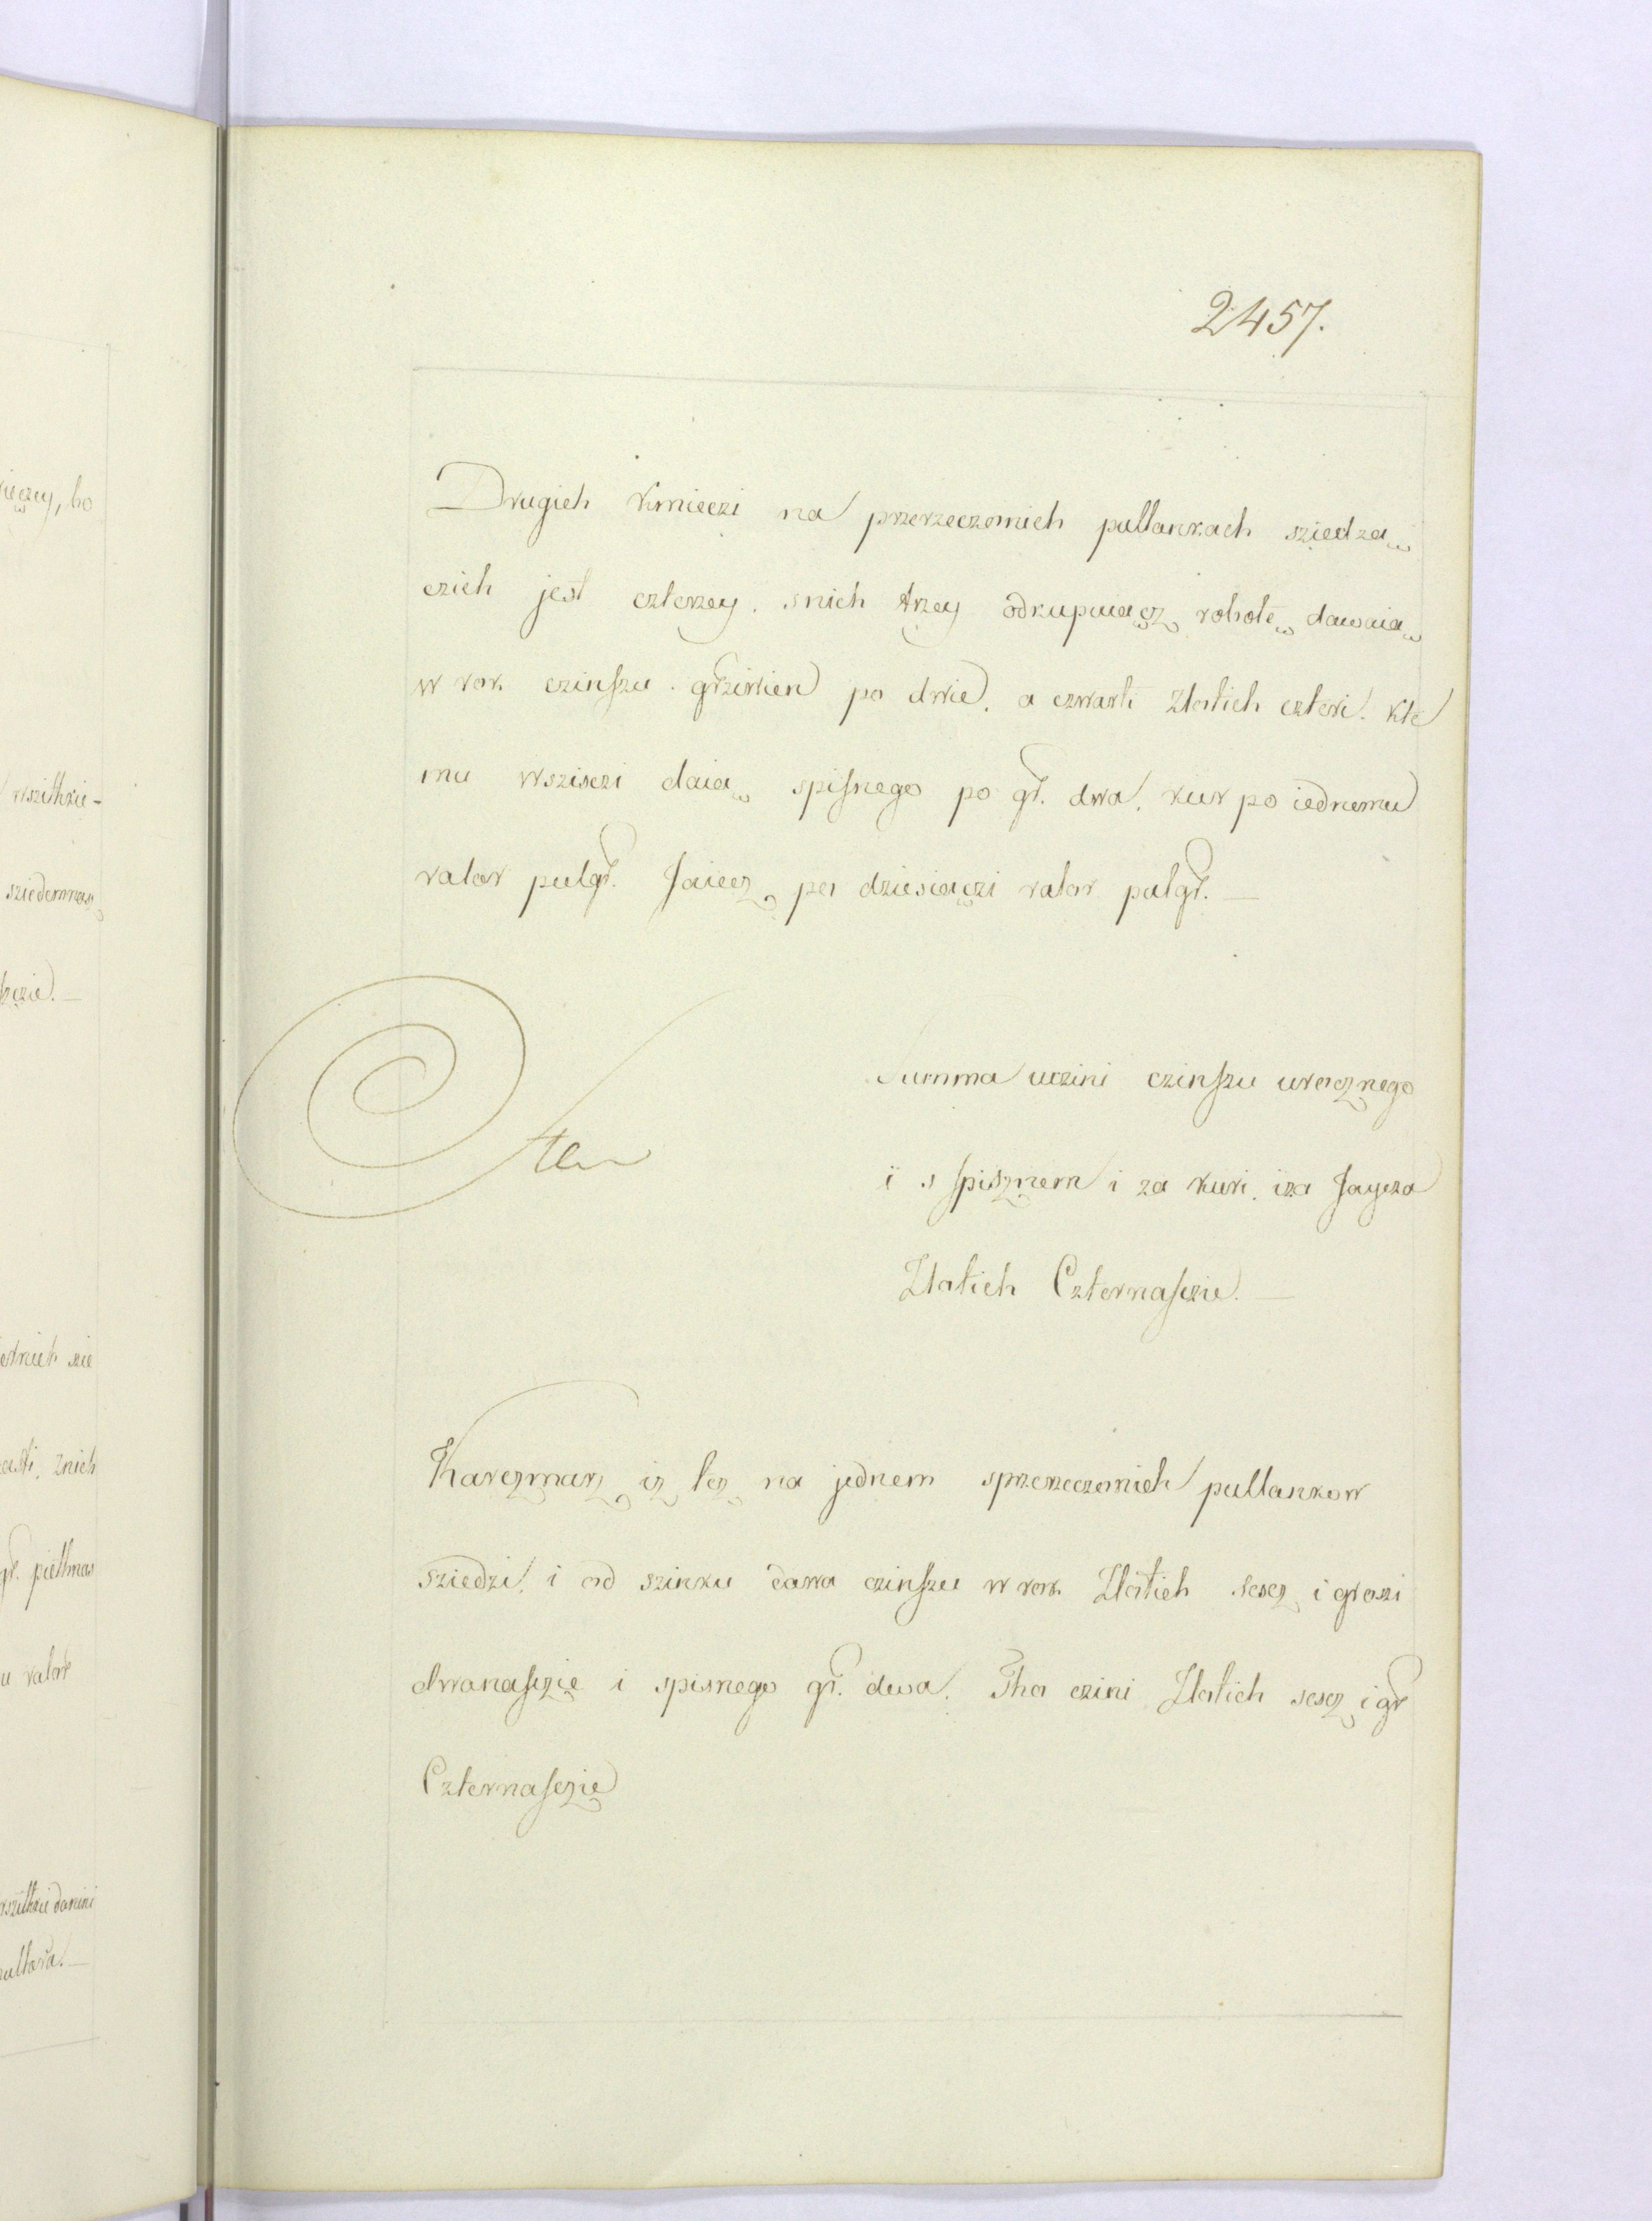 2457.
Drugich kmieczi na przerzeczonich pullankach sziedzą
czich jest czterzey. snich trzey odkupuiącz robotę dawaią
w rok czinszu. grziwien po dwie. a czwarti Zlotich czteri. kte
mu wszisczi daią spisnego po gr. dwa. kur po iednemu
valor pulgr. Jaiecz po dziesiączi valor pulgr. —
Summa uczini czinszu urocznego
i s spisznem i za kuri. iza Jaycza
Zlotich Czternascie. —
Karczmarz iz tez na jednem sprzerzeczonich pullankow
sziedzi. i od szinku dawa czinszu w rok Zlotich sescz i groszi
dwanasczie i spisnego gr. dwa. Tho czini Zlotich sescz i gr
Czternasczie
więczy, bo
wszithkie-
sziedmnas
sczie. —
znich
gr. piethnas
u valor
wszithkie danini
pultora. —